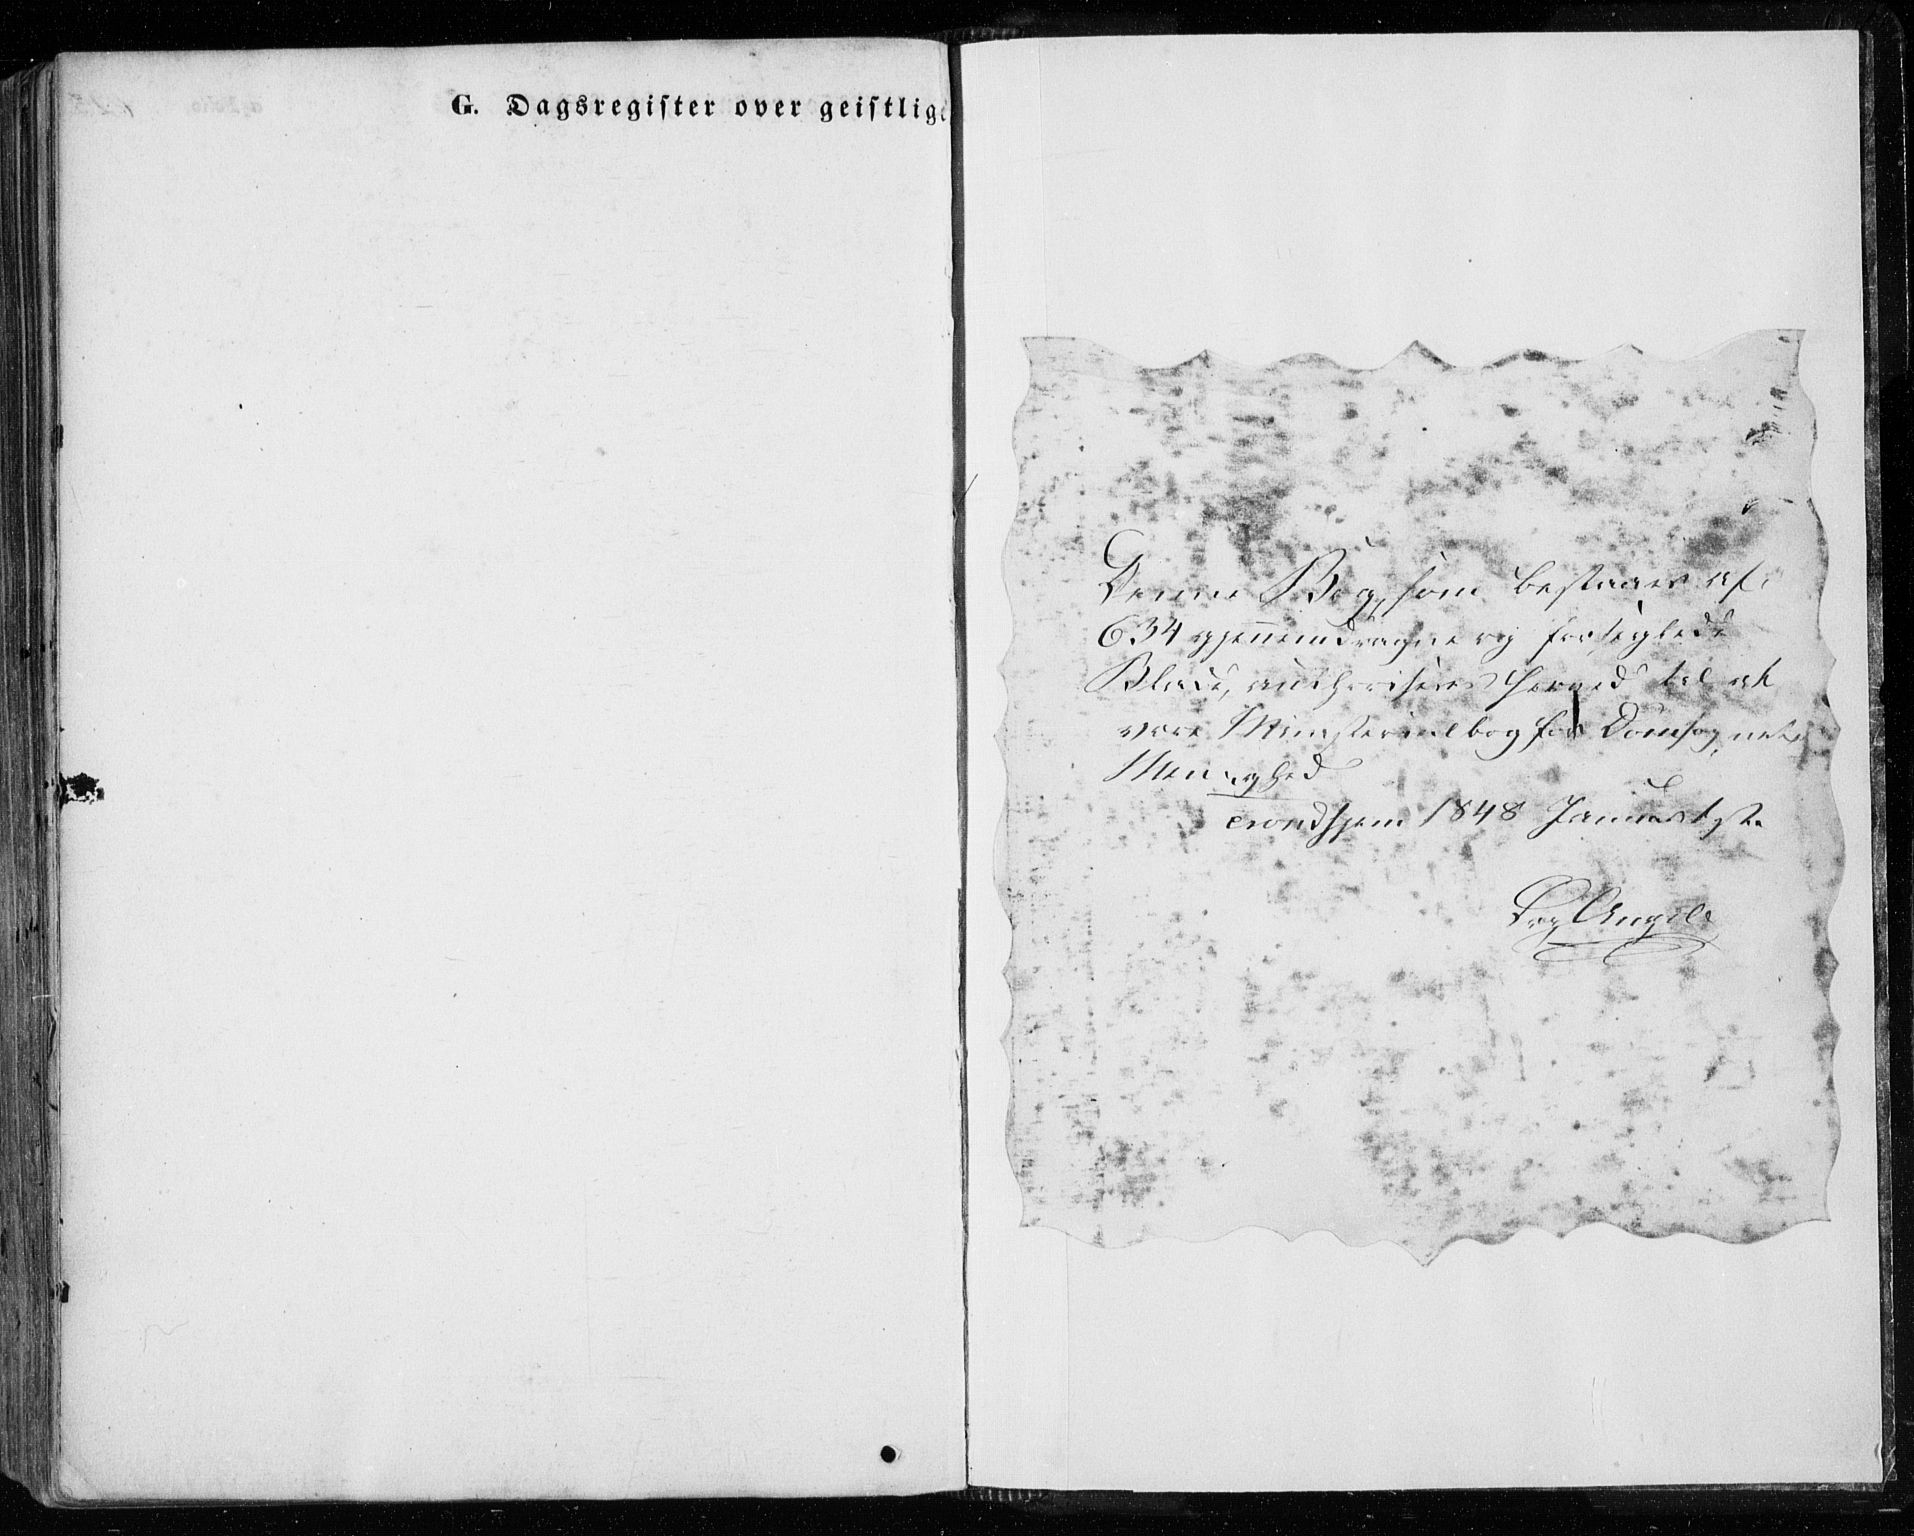 G. Dagsregister over geistlige
Denne Bog, som bestaaer af
634 gjennemdragne og forseglede
Blade, authoriseres herved til at
være Ministerialbog for Domsognets
Menighed
Trondhjem 1848 Januar
Angell